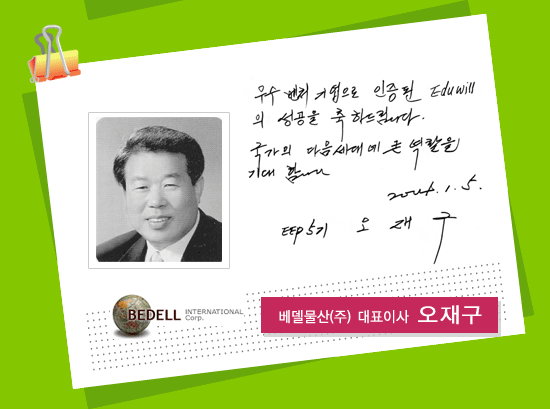 우수 벤처 기업으로 인증된 Eduwill
의 성공을 축하드립니다.
국가의 다음세대에 큰 역할을
기대 합니다
2004.1.5.
EEP 5기 오재구
BEDELL INTERNATIONAL
Corp.
베델물산(주) 대표이사 오재구